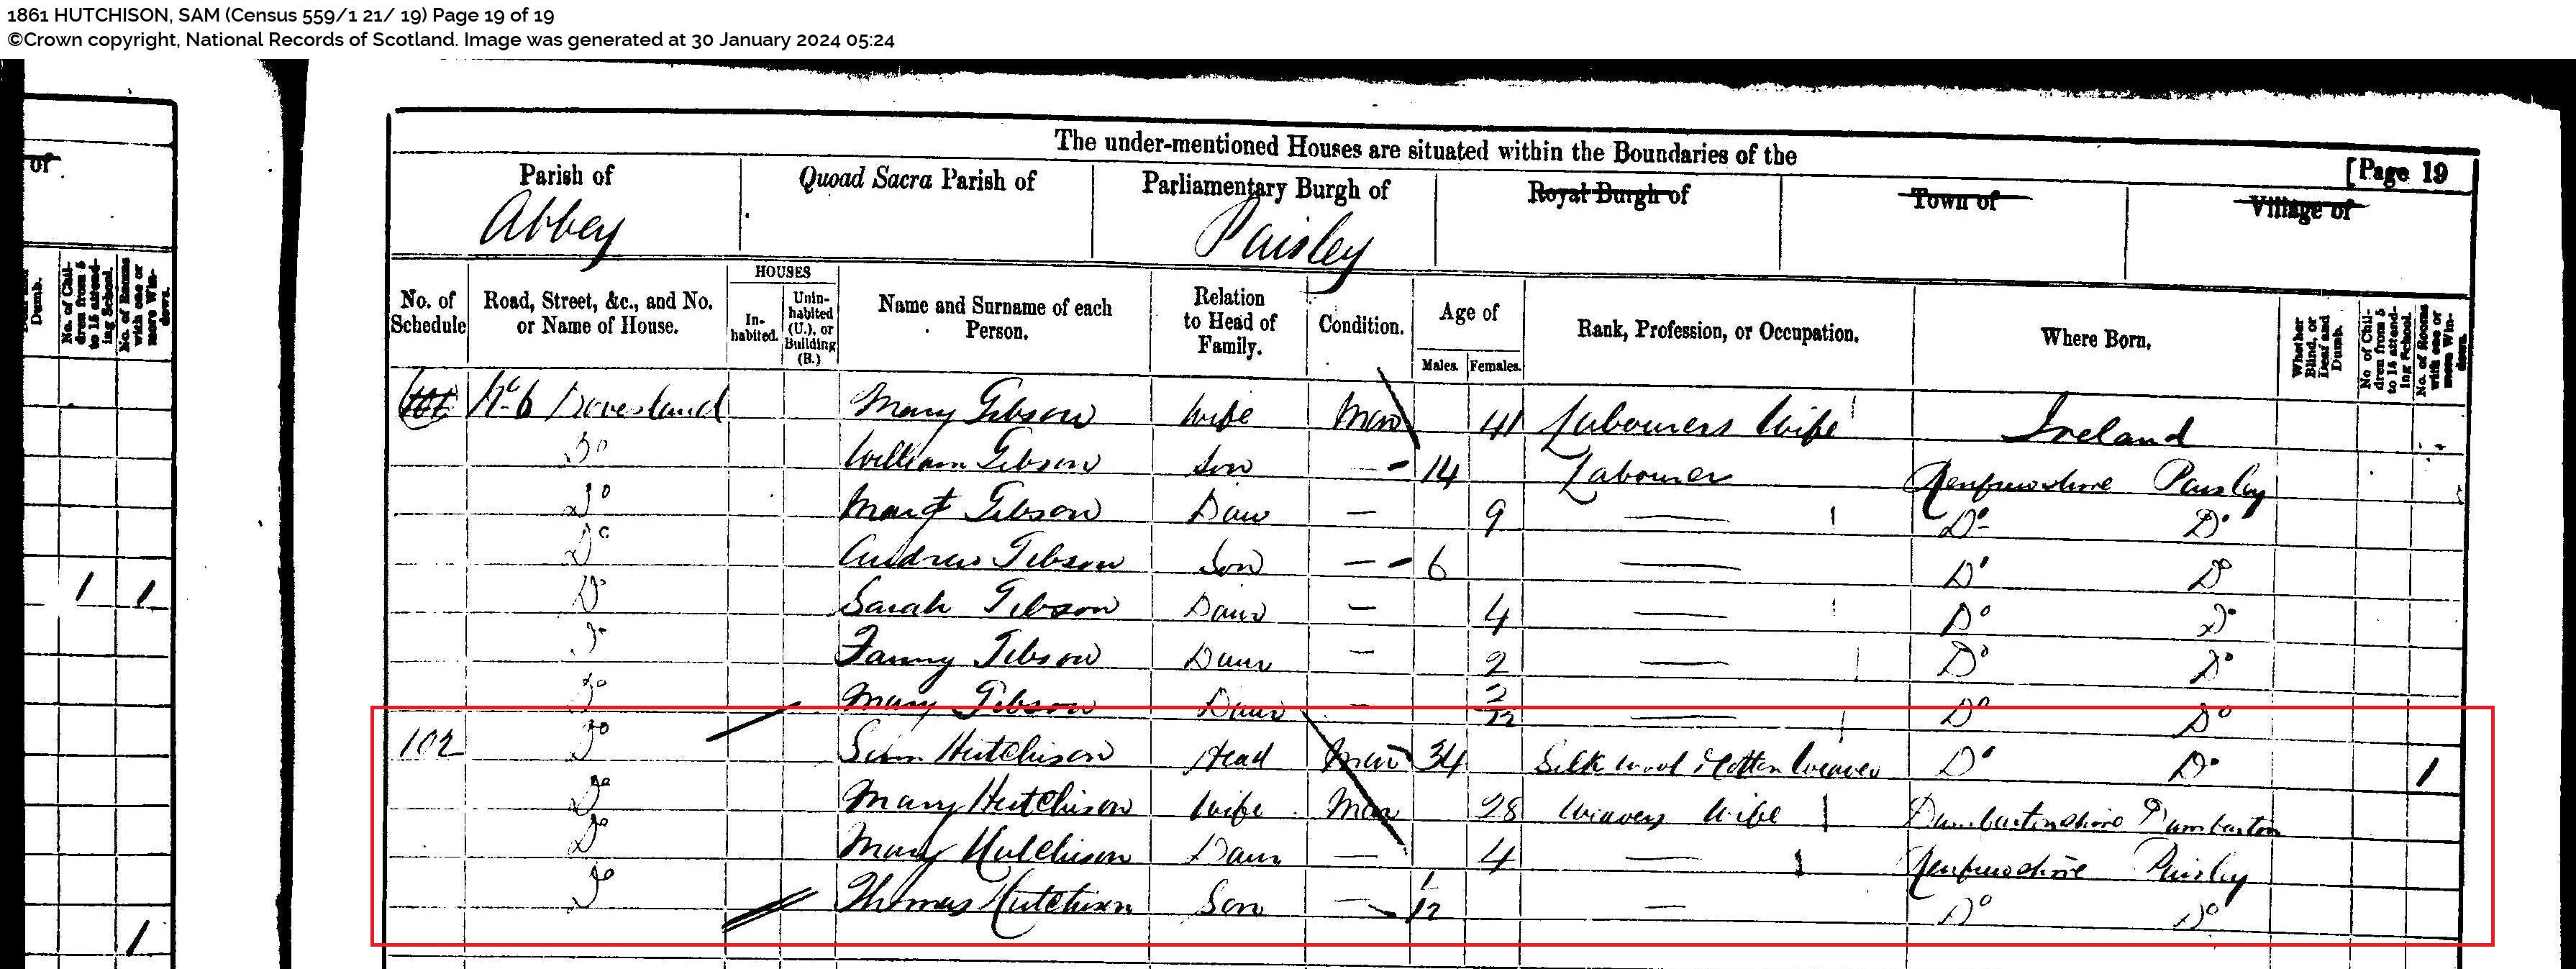 1861 HUTCHISON, SAM (Census 559/1 21/ 19) Page 19 of 19
©Crown copyright, National Records of Scotland. Image was generated at 30 January 2024 05:24
of
Dumb.
No. of Chil-
dren from 5
to 15 attend-
ing School.
No. of Rooms
with one or
more Win-
dows.
1 1
1
The under-mentioned Houses are situated within the Boundaries of the
[Page 19
Parish of
Abbey
Quoad Sacra Parish of
Parliamentary Burgh of
Paisley
Royal Burgh of
Town of
Village of
No. of
Schedule
Road, Street, &c., and No.
or Name of House.
HOUSES
In-
habited.
Unin-
habited
(U.), or
Building
(B.)
Name and Surname of each
Person.
Relation
to Head of
Family.
Condition.
Age of
Males. Females.
Rank, Profession, or Occupation.
Where Born,
Whether
Blind, or
Deaf and
Dumb.
No of Chil-
dren from 5
to 15 attend-
ing School.
No. of Rooms
with one or
more Win-
dows.
101 No 6 Dovesland Mary Gibson Wife Mar 41 Labourers Wife Ireland
Do William Gibson Son — 14 Labourer Renfrewshire Paisley
Do Margt Gibson Daur — 9 — Do Do
Do Andrew Gibson Son — 6 — Do Do
Do Sarah Gibson Daur — 4 — Do Do
Do Fanny Gibson Daur — 2 — Do Do
Do Mary Gibson Daur — 2/12 — Do Do
102 Do Sam Hutchison Head Mar 34 Silk Wool & Cotton Weaver Do Do 1
Do Mary Hutchison Wife Mar 28 Weavers Wife Dumbartonshire Dumbarton
Do Mary Hutchison Daur — 4 — Renfrewshire Paisley
Do Thomas Hutchison Son — 1/12 — Do Do